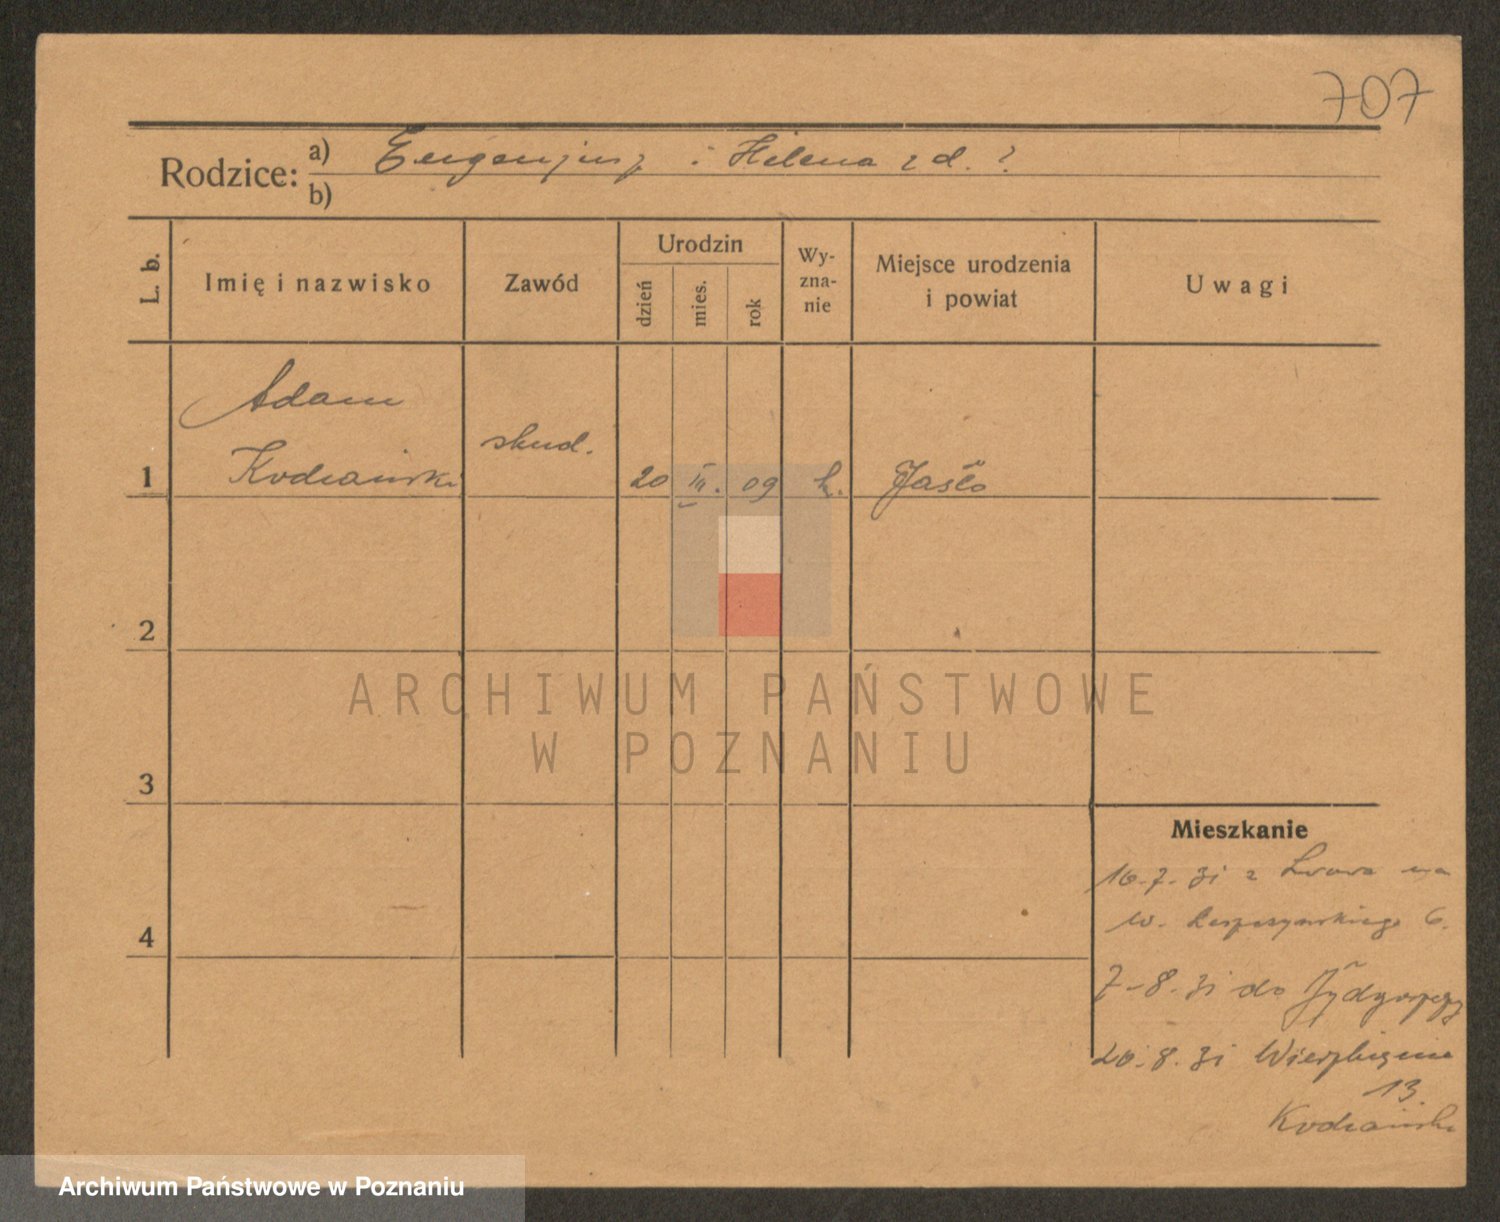 707
Rodzice: a) Eugenjusz i Helena zd. ?
b)
L. b.
Imię i nazwisko
Zawód
Urodzin
dzień
mies.
rok
Wy-
zna-
nie
Miejsce urodzenia
i powiat
Uwagi
Adam
1 stud. 20 III. 09 k. Jasło
2
3
4
Mieszkanie
16.7.31 z Lwowa na
w. 6.
7-8-31 do
20.8.31 Wierzbięcice
13.
ARCHIWUM PAŃSTWOWE
W POZNANIU
Archiwum Państwowe w Poznaniu